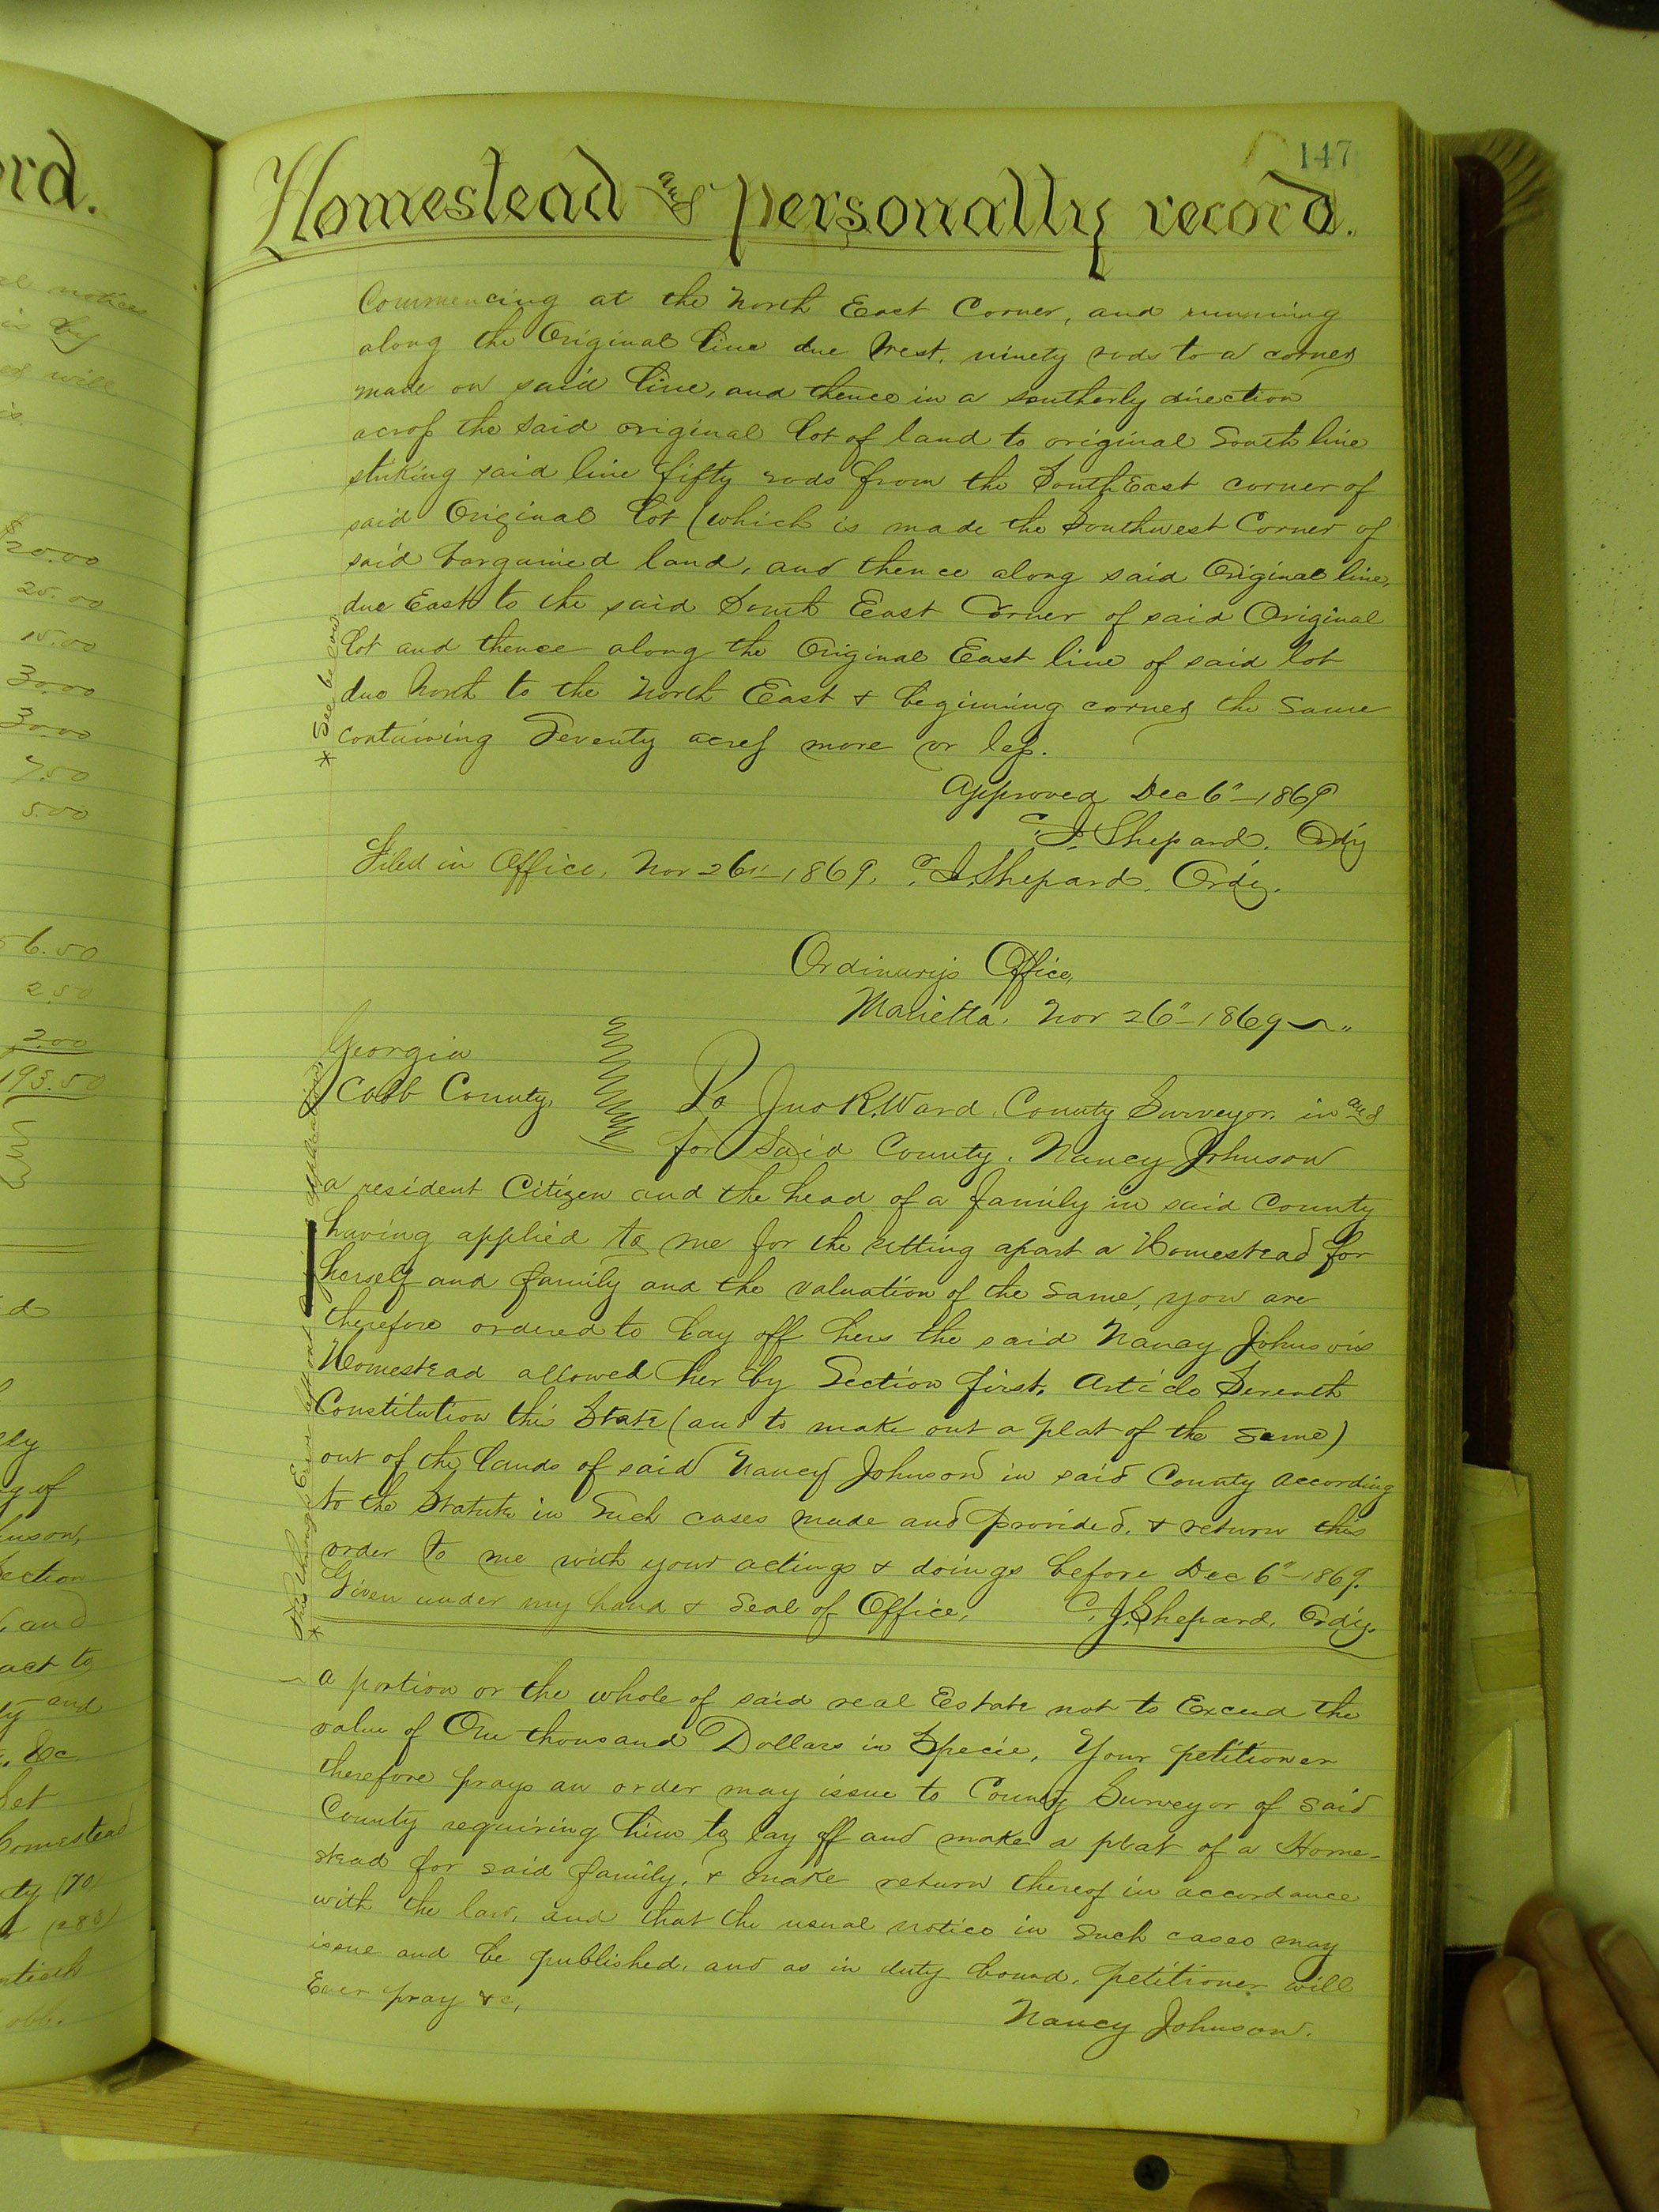 147
Homestead and personally record.
Commencing at the North East Corner, and running
along the Original line due West, ninety rods to a corner
made on said line, and thence in a southerly direction
across the said original lot of land to original South line
striking said line fifty rods from the South East corner of
said Original lot (which is made the Southwest Corner of
said bargained land, and thence along said Original line,
due East to the said South East Corner of said Original
lot and thence along the Original East line of said lot
due North to the North East & begining corner the same
containing Seventy acres more or less.
* See below
Approved Dec 6" 1869
C. J. Shepard, Ordy
Filed in Office, Nov 26th 1869, C. J. Shepard, Ordy.
Ordinary's Office,
Marietta, Nov 26" 1869
Georgia
Cobb County,
To Jno R. Ward, County Surveyor, in and
for Said County. Nancy Johnson
a resident Citizen and the head of a family in said County
having applied to me for the setting apart a Homestead for
herself and family and the valuation of the same, you are
therefore ordered to lay off hers the said Nancy Johnson's
Homestead allowed her by Section first, Article Seventh
Constitution this State (and to make out a plat of the same)
out of the lands of said Nancy Johnson in said County according
to the Statute in Such cases made and provided, & return this
order to me with your actings & doings before Dec 6" 1869.
Given under my hand & Seal of Office, C. J. Shepard, Ordy.
*
a portion or the whole of said real Estate not to Exceed the
value of One thousand Dollars in Specie, Your petitioner
therefore prays an order may issue to County Surveyor of said
County requiring him to lay off and make a plat of a Home-
stead for said family, & make return thereof in accordance
with the law, and that the usual notice in such cases may
issue and be published, and as in duty bound, petitioner will
Ever pray &c,
Nancy Johnson.
ord.
notices
is by
will
is
$20.00
25.00
15.00
30.00
30.00
7.50
5.00
56.50
2.50
2.00
193.50